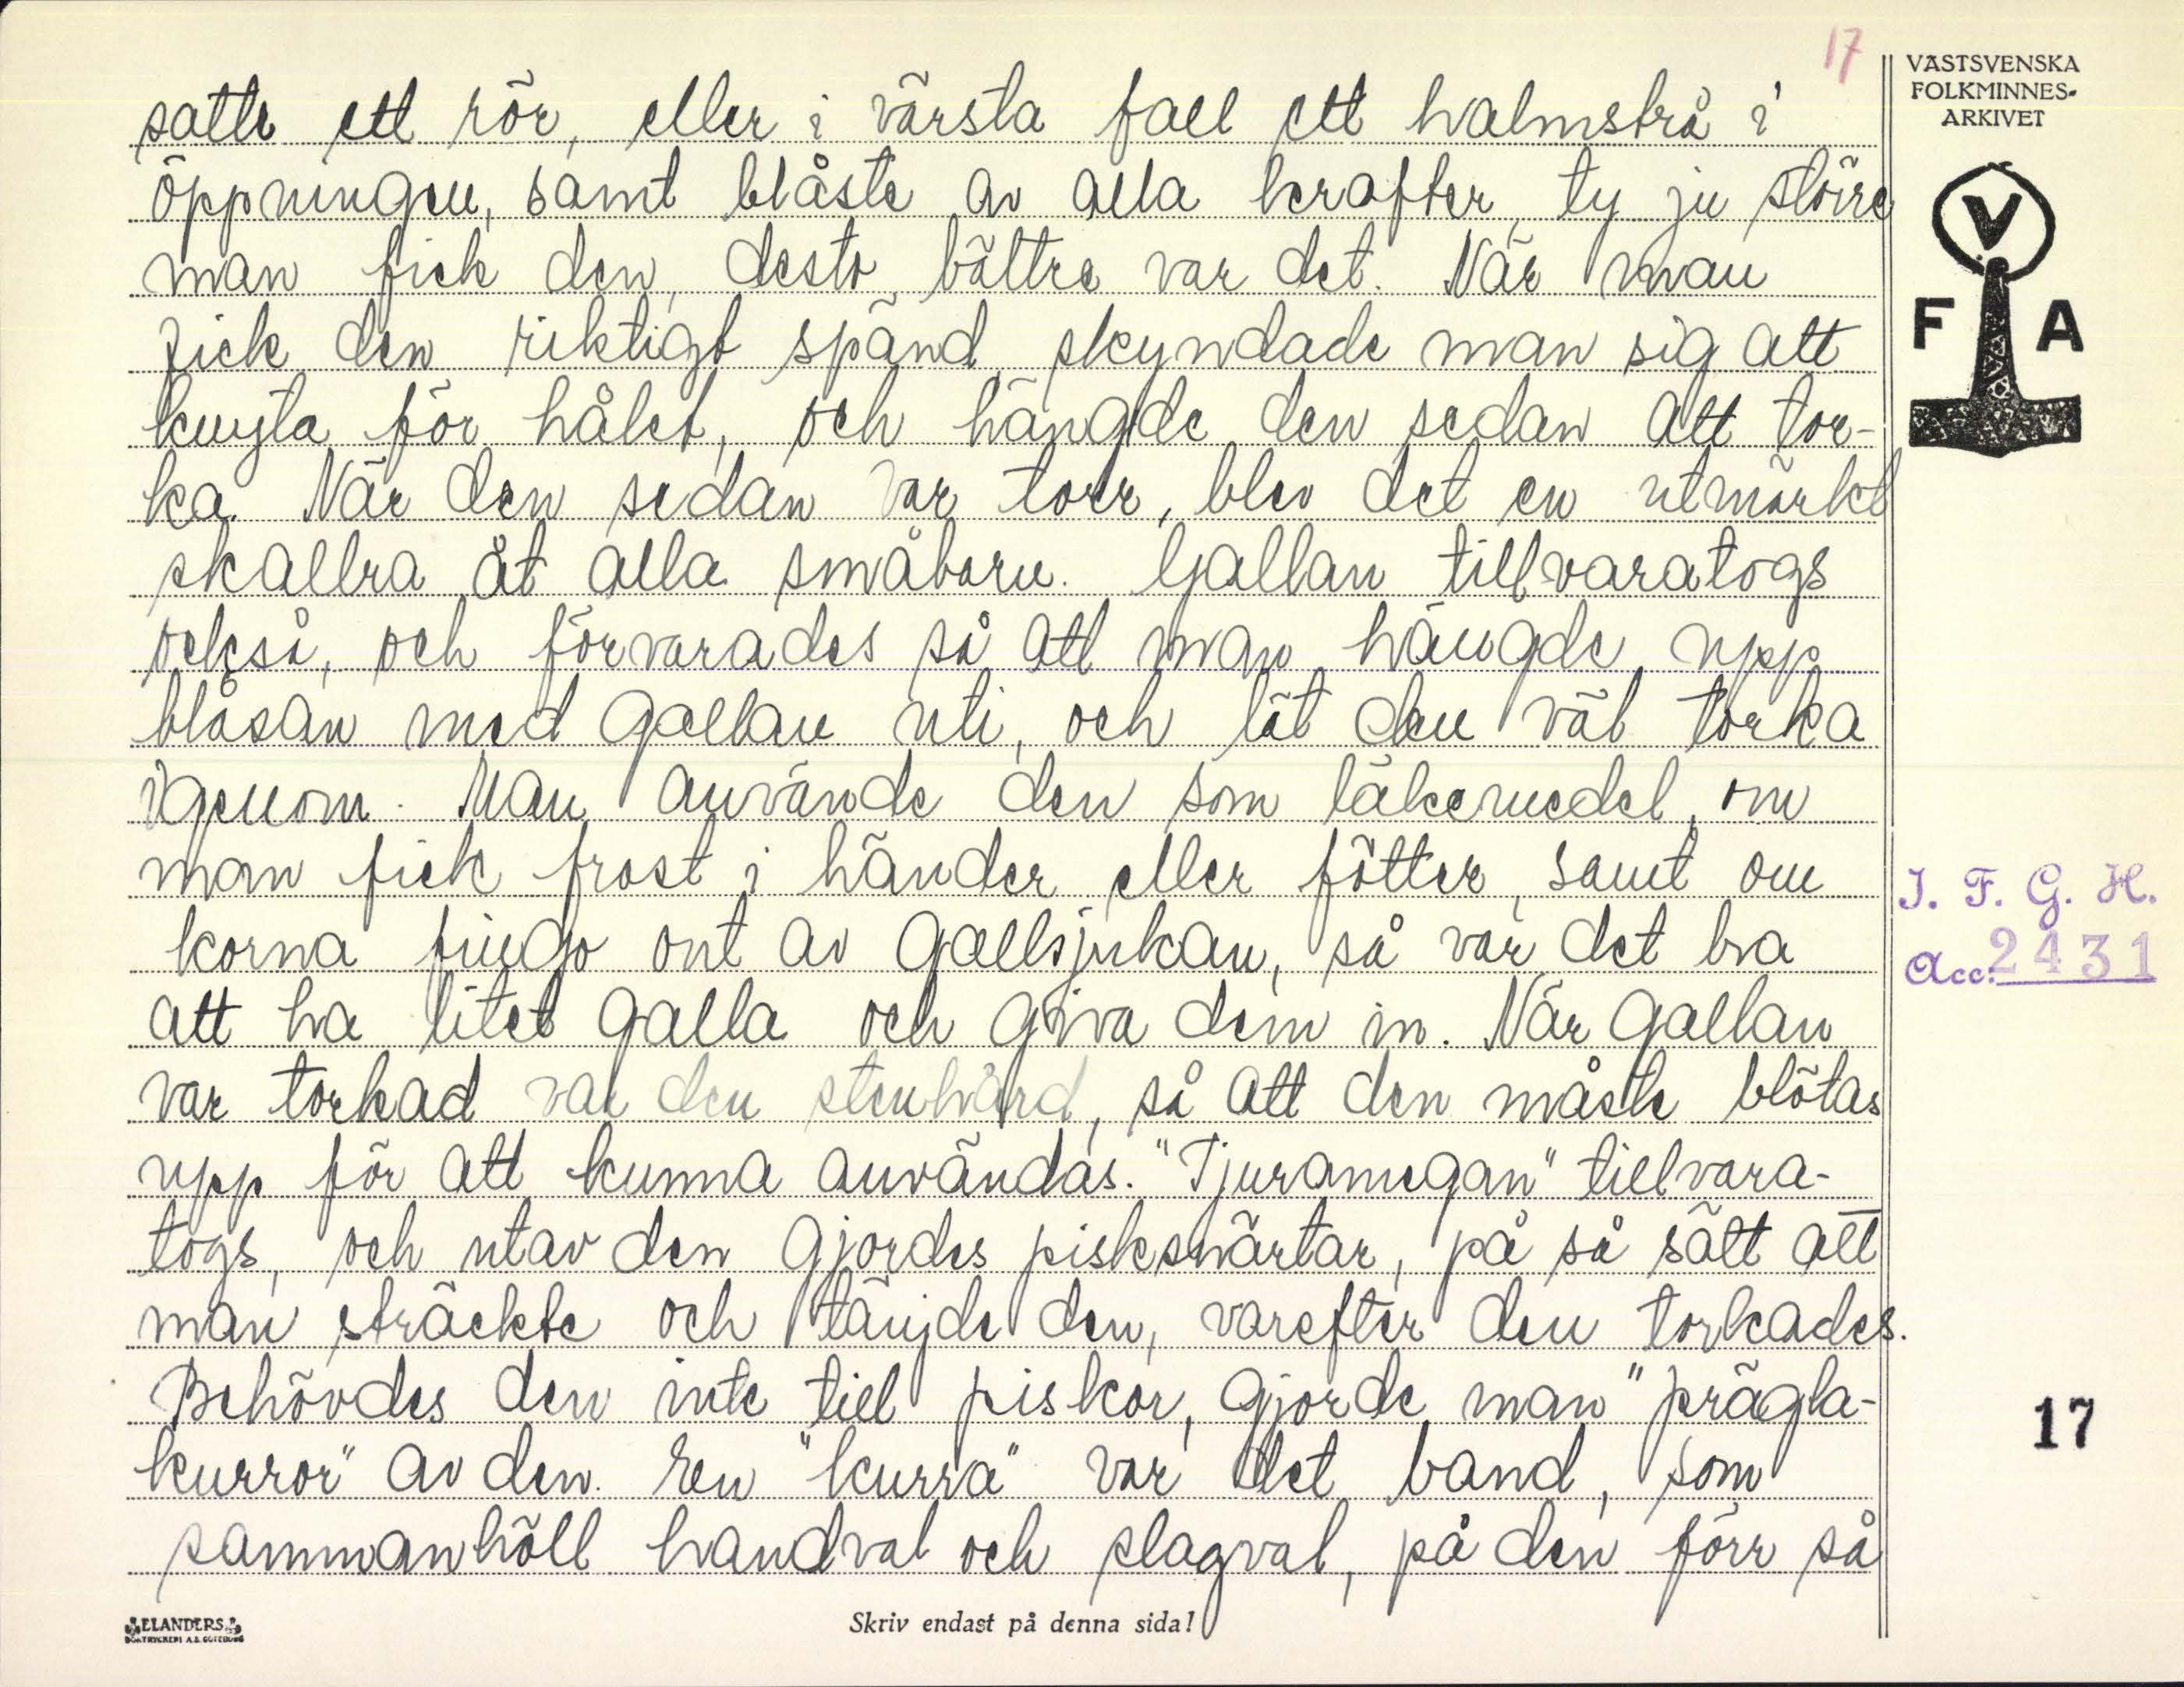 17
VÄSTSVENSKA
FOLKMINNES-
ARKIVET
V
F A
satte ett rör, eller i värsta fall ett halmstrå i
öppningen, samt blåste av alla krafter, ty ju större
man fick den, desto bättre var det. När man
fick den riktigt spänd, skyndade man sig att
knyta för hålet, och hängde den sedan att tor-
ka. När den sedan var torr, blev det en utmärkt
skallra åt alla småbarn. Gallan tillvaratogs
också, och förvarades så att man hängde upp
blåsan med gallan uti, och lät den väl torka
igenom. Man använde den som läkemedel, om
man fick frost i händer eller fötter, samt om
korna fingo ont av gallsjukan, så var det bra
att ha litet galla och giva dem in. När gallan
var torkad var den stenhård, så att den måste blötas
upp för att kunna användas. "Tjuramegan" tillvara-
togs, och utav den gjordes pisksnärtar, på så sätt att
man sträckte och tänjde den, varefter den torkades.
Behövdes den inte till piskor, gjorde man "prägla-
kurror" av den. En "kurra" var det band, som
sammanhöll handval och slagval, på den förr så
I. F. G. H.
Acc. 2431
17
ELANDERS
BOKTRYCKERI A.B. GÖTEBORG
Skriv endast på denna sida!